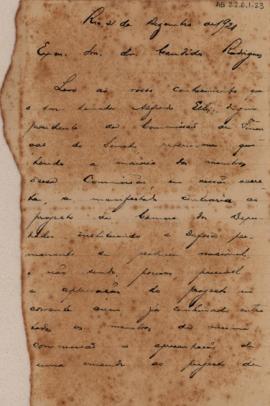 AB 22.0.1-23
Rio, 21 de Dezembro de 1921
Exm. Snr. Dr. Candido Rodrigues
Levo ao vosso conhecimento que
o Snr. Senador Alfredo Ellis, digno
presidente da Commissão de Finan
ças do Senado,
tendo a maioria dos membros
dessa Commissão, em sessão secre
ta, se manifestado contraria ao
projecto da Camara dos Depu
tados instituindo a Defesa per
manente da producção nacional,
e não sendo, porisso, possivel
a approvação do projecto no
corrente anno, já combinado entre
todos os membros da mesma
commissão a apresentação de
uma emenda ao projecto de